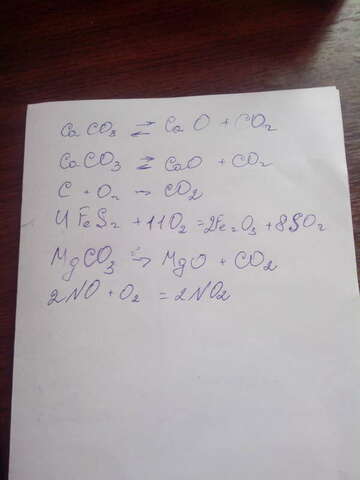 CaCO₃ ⇄ CaO + CO₂
CaCO₃ ⇄ CaO + CO₂
C + O₂ → CO₂
4FeS₂ + 11O₂ = 2Fe₂O₃ + 8SO₂
MgCO₃ → MgO + CO₂
2NO + O₂ = 2NO₂